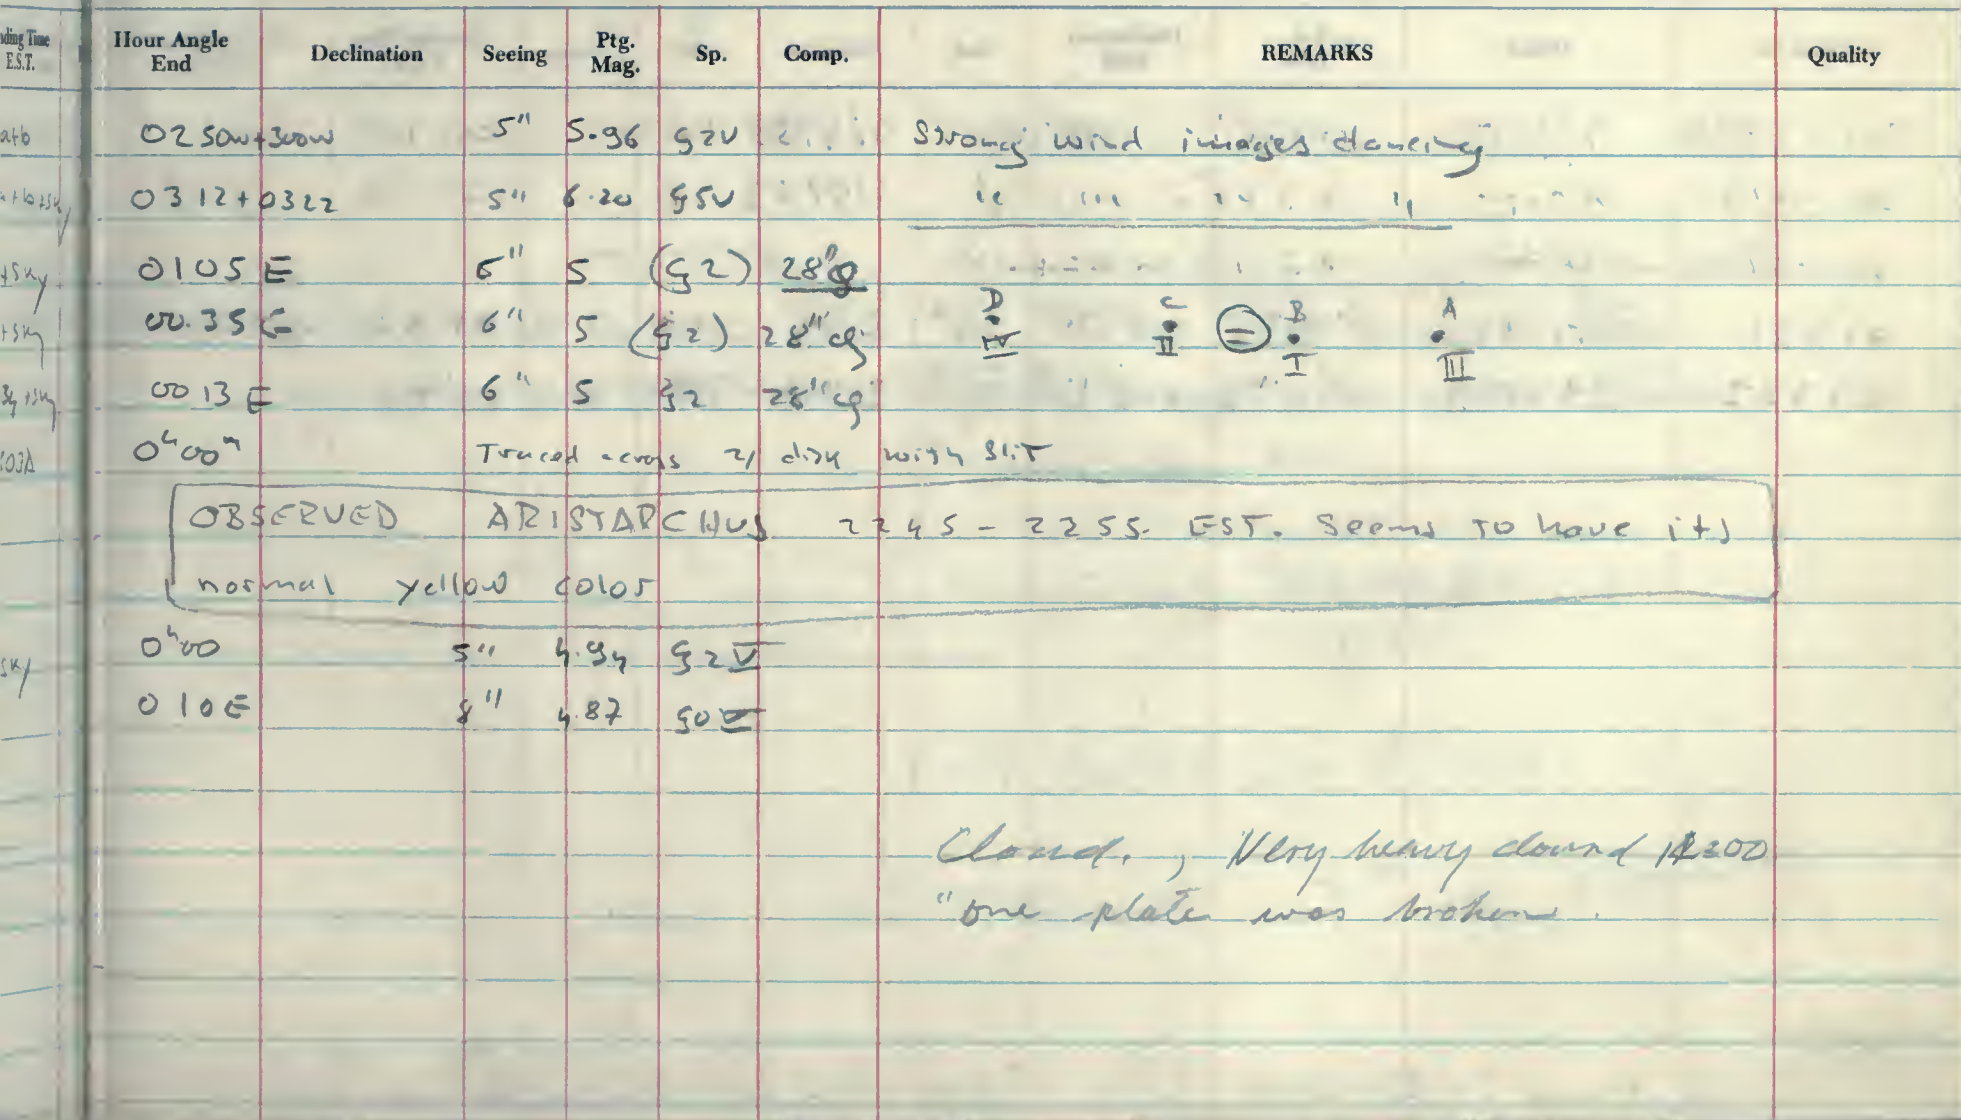 nding Time E.S.T. Hour Angle End Declination Seeing Ptg. Mag. Sp. Comp. REMARKS Quality
a+b 0250w+300w 5" 5.96 G2V Strong wind images dancing
0312+0322 5" 6.20 G5V " " " "
+sky 0105 E 6" 5 (G2) 28"cg
D C B A
+sky 00.35 E 6" 5 (G2) 28"cg
IV II I III
0013 E 6" 5 G2 28"cg
103A 0h00m Traced across ♃ disk with Slit
OBSERVED ARISTARCHUS 2245 - 2255. EST. Seems to have its
normal yellow color
sky 0h00 5" 4.94 G2V
010E 8" 4.87 G0V
Cloud., Very heavy cloud
"one plate was broken.